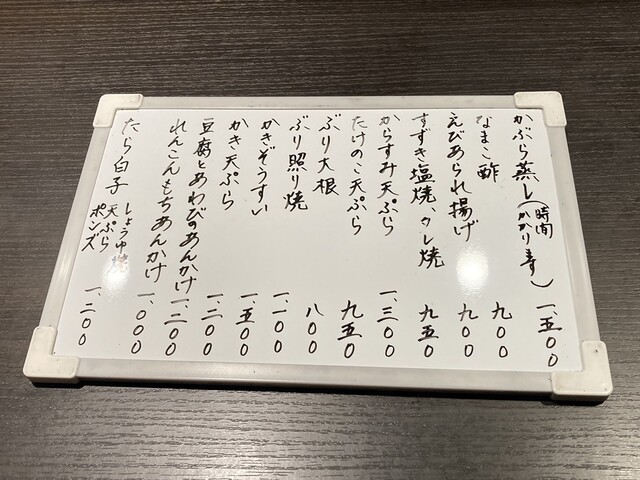 かぶら蒸し(時間かかります) 一、五〇〇
なまこ酢 九〇〇
えびあられ揚げ 九〇〇
すずき塩焼、タレ焼 九五〇
からすみ天ぷら 一、三〇〇
たけのこ天ぷら 九五〇
ぶり大根 八〇〇
ぶり照り焼 一、一〇〇
かきぞうすい 一、五〇〇
かき天ぷら 一、二〇〇
豆腐とあわびのあんかけ 一、二〇〇
れんこんもちあんかけ 一、〇〇〇
たら白子 しょうゆ焼 天ぷら ポンズ 一、二〇〇